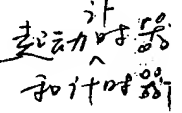 起动计时器
和计时器